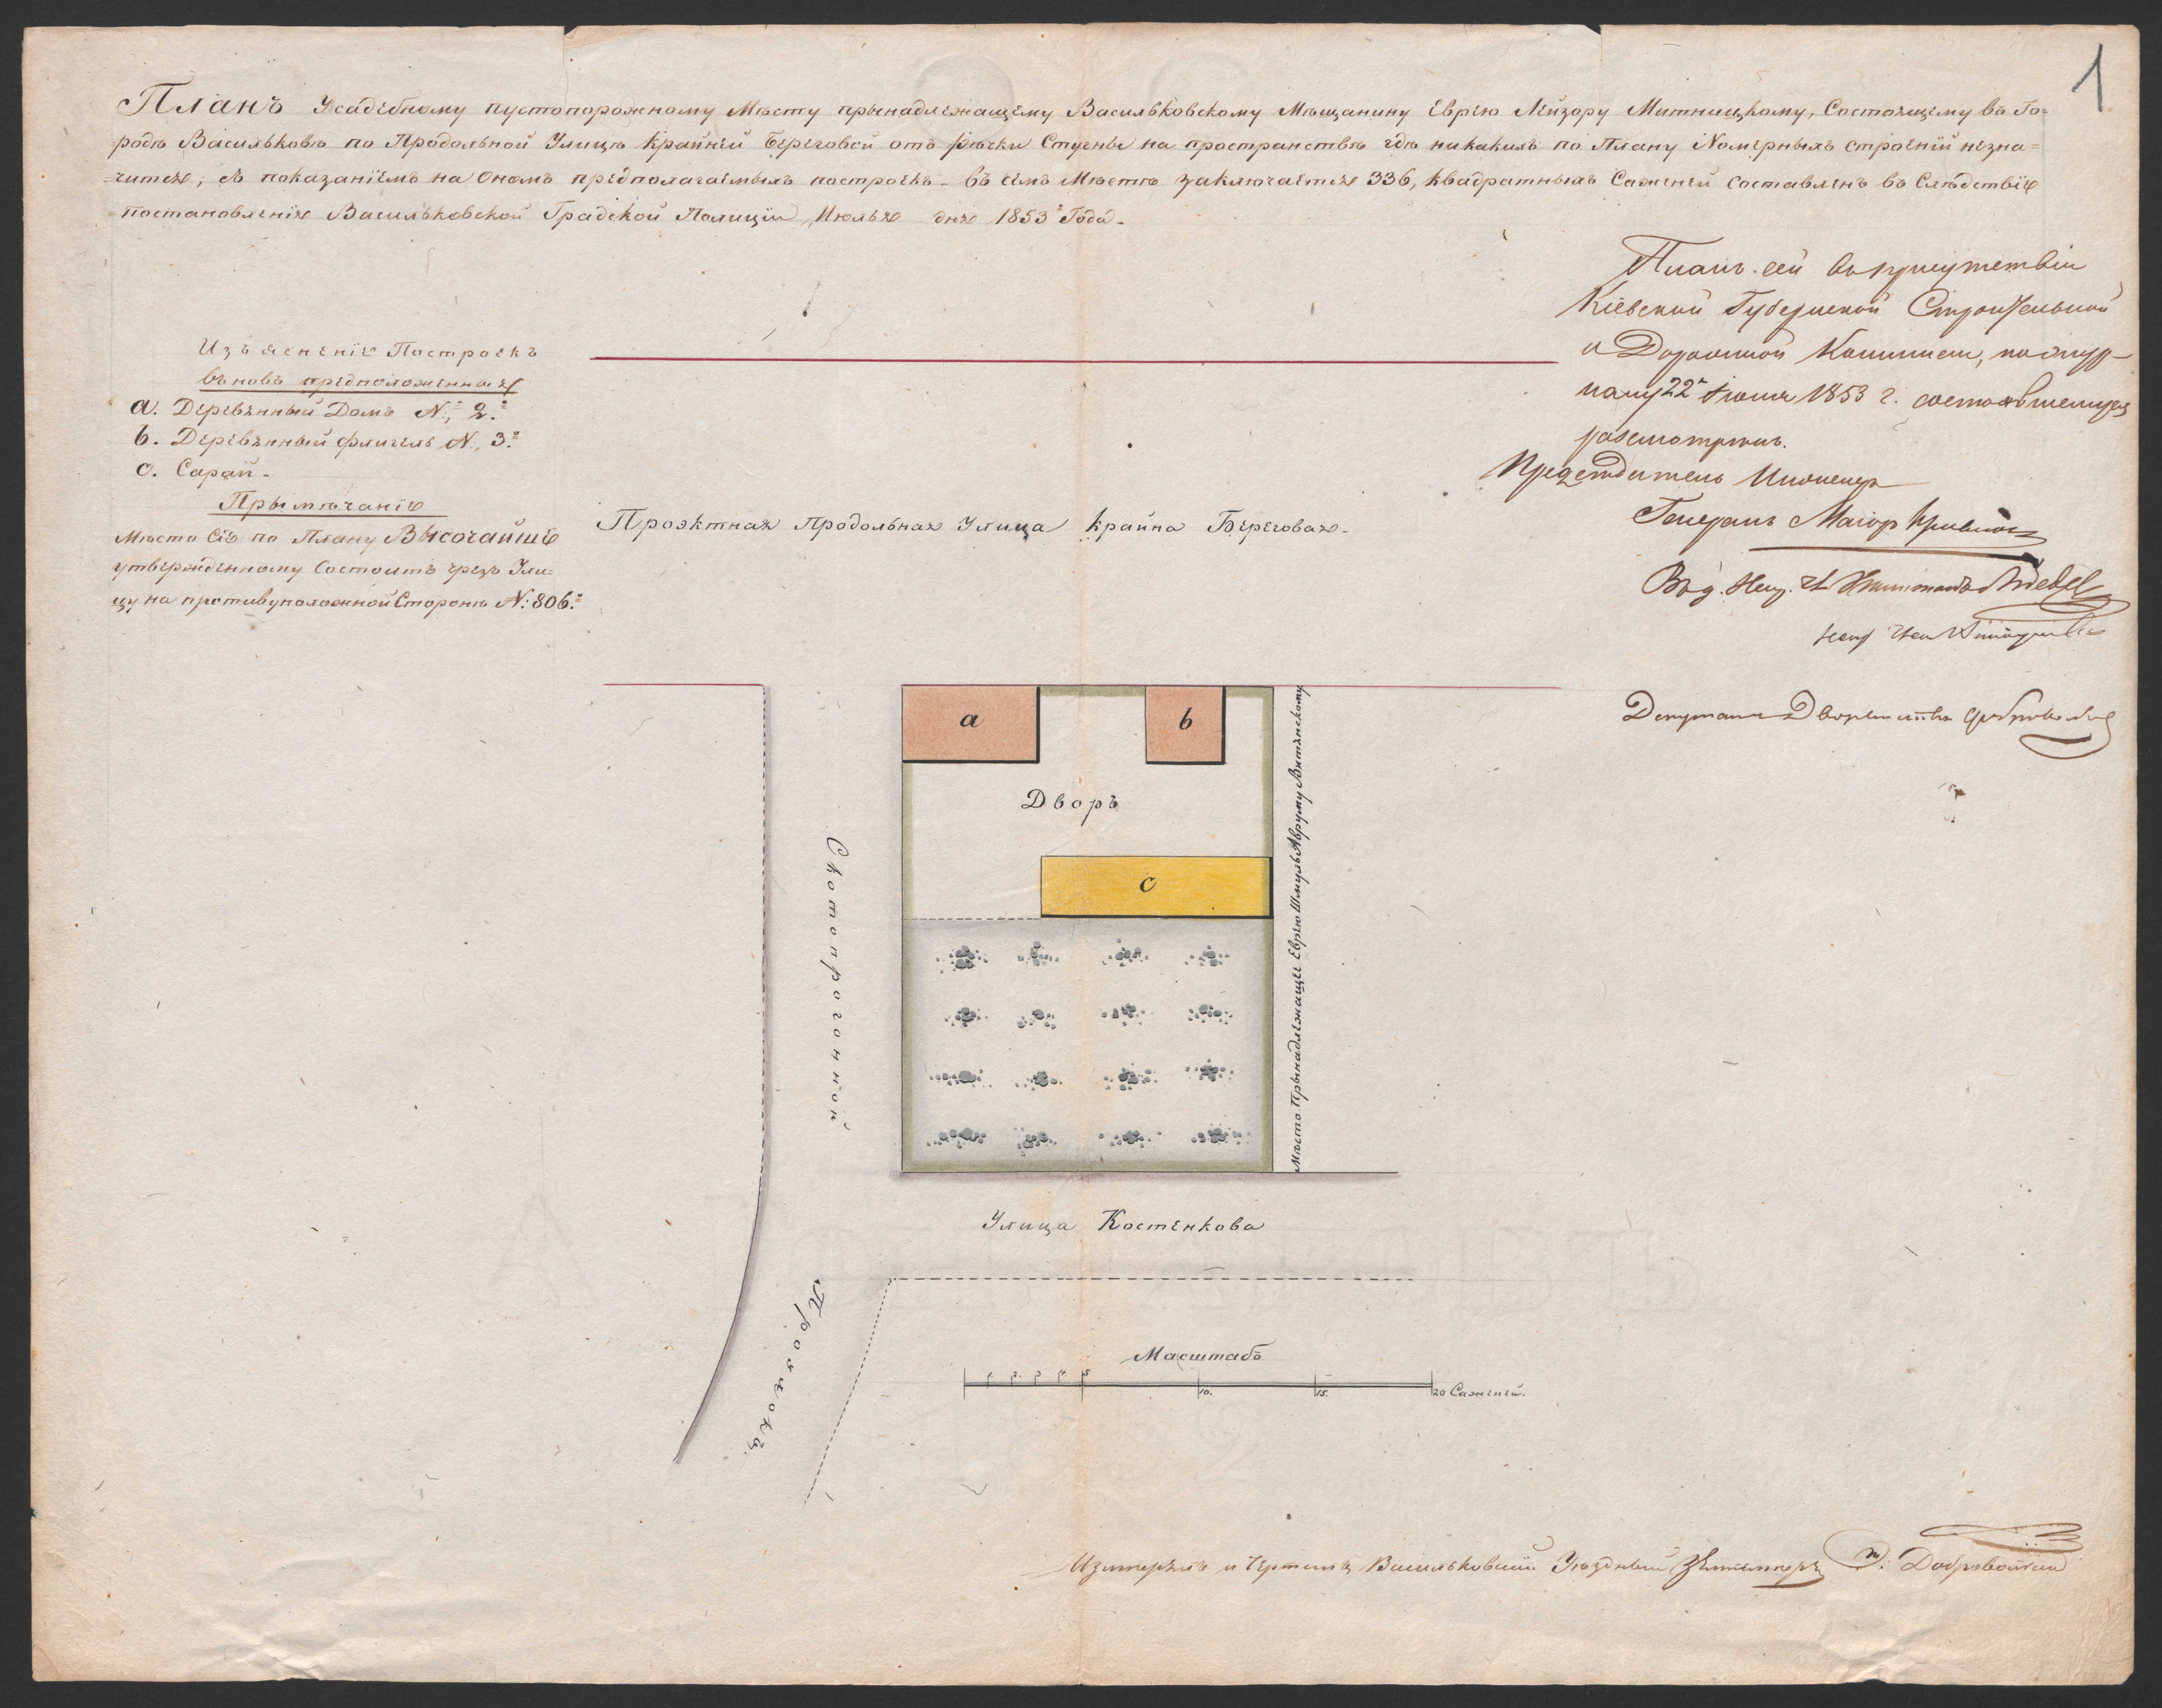 1
Планъ Усадебному пустопорожному Мѣсту прынадлежащему Васильковскому Мѣщанину Еврею Лейзору Митницкому, Состоящему въ Го=
=родѣ Васильковѣ по Продольной Улицѣ Крайнѣй Береговой отъ рѣчки Стугны на пространствѣ гдѣ никакихъ по Плану Номерныхъ строеній незна=
=чится, съ показаніемъ на Ономъ предполагаемыхъ построекъ. Въ семъ Мѣстѣ заключается 336, квадратныхъ Саженей Составленъ въ Слѣдствіе
постановленія Васильковской Градской Полиціи, Июльъ дня 1853 Года.
Планъ сей въ присутствіи
Кіевской Губернской Строительной
и Дорожной Комиссіи, по жур-
налу 22 Іюля 1853 г. состоявшемуся
разсмотренъ.
Председатель Инженеръ
Генералъ Маіоръ
Депутатъ Дворянства
Изъясненіе Построекъ
вновь предположенныхъ
a. Деревянный Домъ №, 2.
b. Деревянный флигель №, 3.
c. Сарай.
Прымѣчаніе
Мѣсто Сіе по Плану Высочайше
утвержденному Состоитъ чрезъ Ули=
цу на противуположной Сторонѣ №: 806.
Проэктная Продольная Улица Крайна Береговая.
a
b
Дворъ
c
Скотопрогонной
Мѣсто Прынадлежаще Еврею Шмуль Авруму Витянскому
Улица Костенкова
Проулокъ
Масштабъ
1. 2. 3 4. 5 10. 15. 20 Саженей.
Измерялъ и Чертилъ Васильковский Уѣздный Землемеръ Добровольский